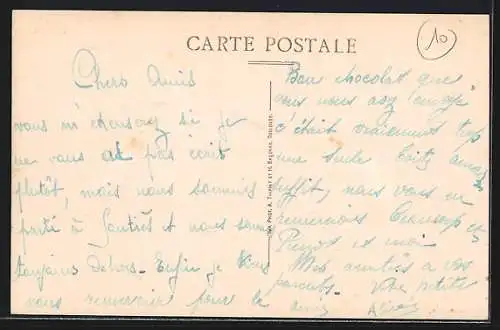 CARTE POSTALE
10
Chers Amis
vous m'excuserez si je
ne vous ai pas écrit
plutôt, mais nous sommes
parti à et nous sommes
toujours dehors - Enfin je vous
vous remercier pour le
Bon chocolat que
vous nous avez envoyé
c'était vraiment trop
une seule
suffit, nous vous en
remercions Beaucoup
Pierrot et moi
Mes amitiés à vos
parents. Votre petite
amie